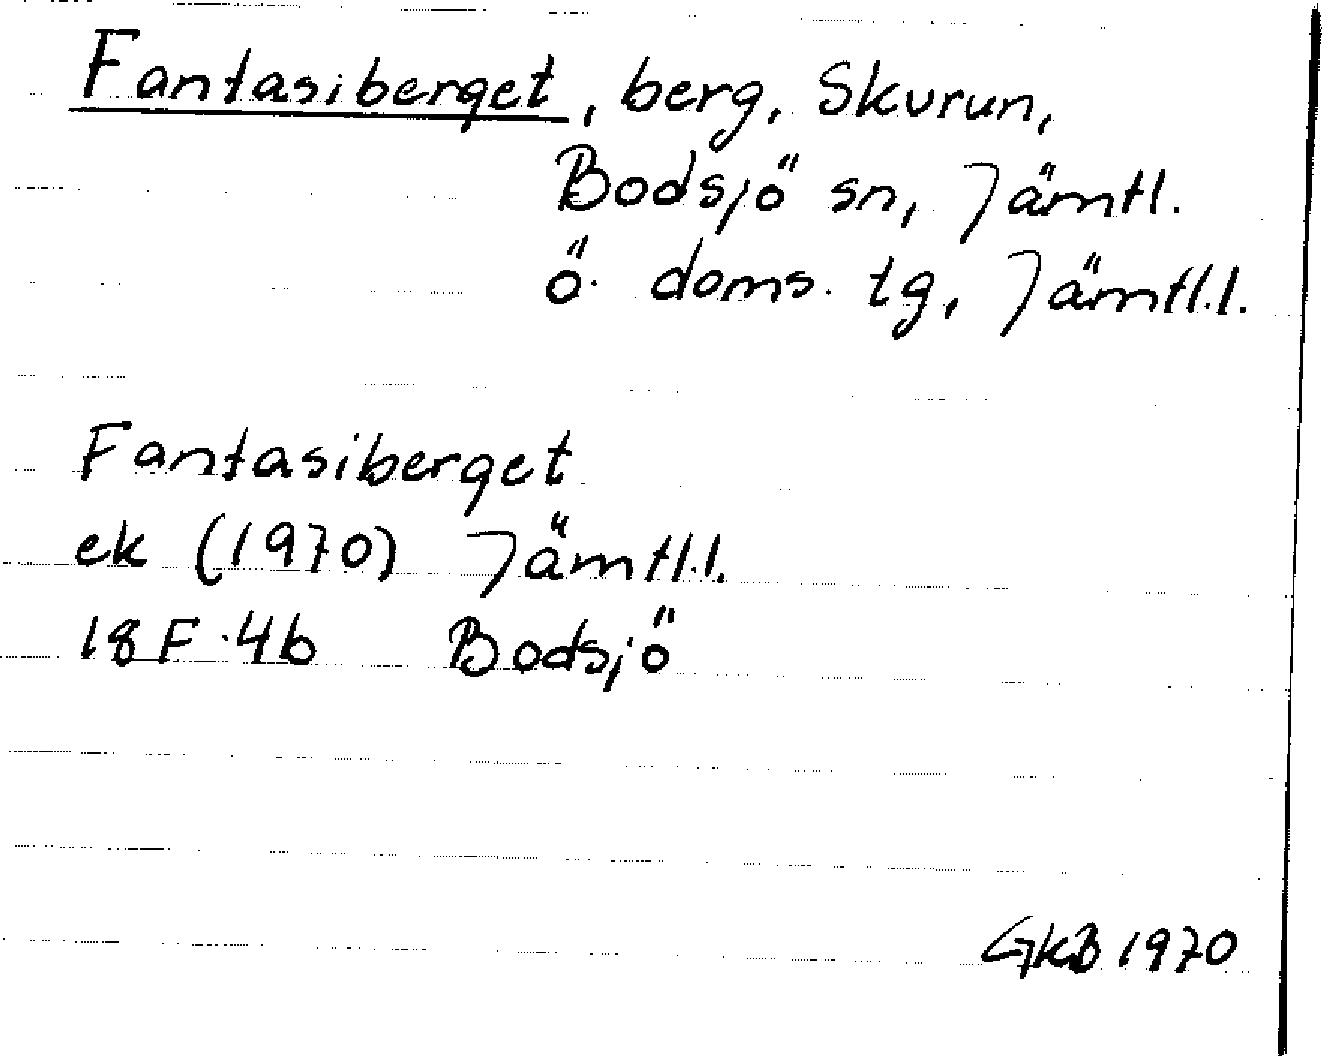 Fantasiberget, berg, Skurun,
Bodsjö sn, Jämtl.
ö. doms. tg, Jämtl.l.
Fantasiberget
ek (1970) Jämtl.l.
18F.4b Bodsjö
GKB 1970